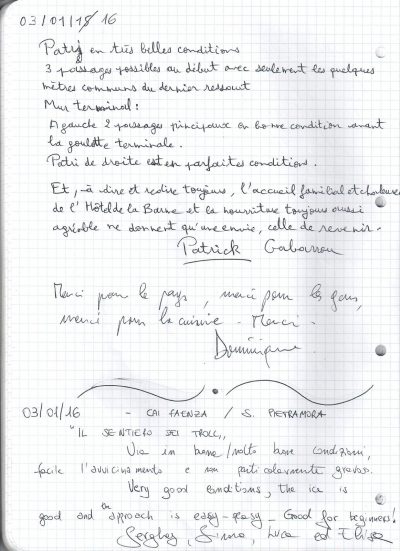 03/01/15/16
Patrij en très belles conditions
3 passages possibles au début avec seulement les quelques
mètres communs du dernier ressaut
Mur terminal :
A gauche 2 passages principaux en bonne condition avant
la goulotte terminale.
Patri de droite est en parfaites conditions.
Et, à dire et redire toujours, l'accueil familial et chaleureux
de l'Hôtel de la Barme et la nourriture toujours aussi
agréable ne donnent qu'une envie, celle de revenir.
Patrick Gabarrou
Merci pour le pays, merci pour les gens,
merci pour la cuisine - Merci -
Dominique
03/01/16 - CAI FAENZA / S. PIETRAMORA
"IL SENTIERO DEI TROLL"
Via in bune/molto bune condizioni,
facile l'avvicinamento e non particolarmente gravoso.
Very good conditions, the ice is
good and the approach is easy-peasy - Good for beginners!
Luca ed Elisa